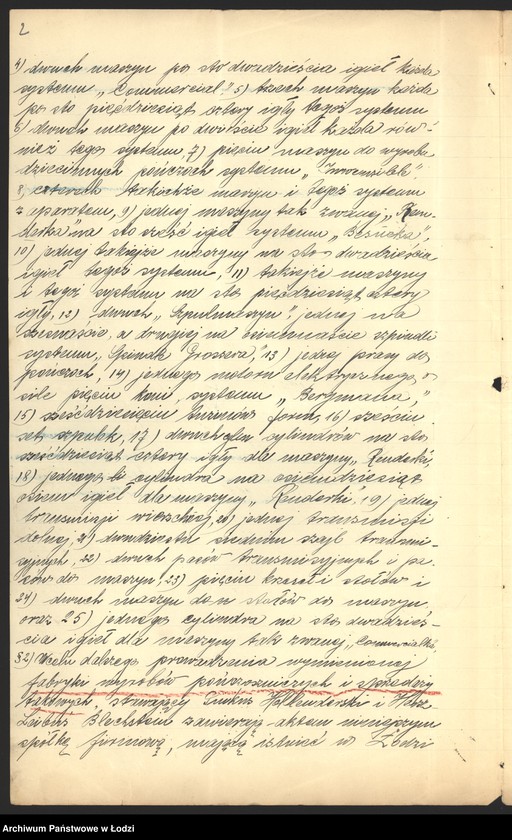 2
4) dwóch maszyn po sto dwadzieścia igieł każda
systemu „Commercial", 5) trzech maszyn każda
po sto pięćdziesiąt cztery igły tegoż systemu
6) dwóch maszyn po dwieście igieł każda rów-
nież tego systemu, 7) pięciu maszyn do wyrobu
dziecinnych pończoch systemu
8) czterech takichże maszyn i tegoż systemu
z aparatem, 9) jednej maszyny tak zwanej „Ren-
derka" na sto sześć igieł systemu
10) jednej takiejże maszyny na sto dwadzieścia
igieł tegoż systemu, 11) takiejże maszyny
i tegoż systemu na sto pięćdziesiąt cztery
igły, 12) dwóch „Szpulmaszyn", jednej na
szesnaście, a drugiej na osiemnaście szpindli
systemu Grossera, 13) jednej prasy do
pończoch, 14) jednego motoru elektrycznego, o
sile pięciu koni, systemu „Bergmana,"
15) sześćdziesięciu tuzinów form, 16) sześciu
set szpulek, 17) dwóch cylindrów na sto
sześćdziesiąt cztery igły dla maszyny „Renderki",
18) jednego cylindra na osiemdziesiąt
osiem igieł dla maszyny „Renderki, 19) jednej
transmisji wierzchniej, 20) jednej transmisji
dolnej, 21) dwudziestu siedmiu szyb transmi-
syjnych, 22) dwóch pasów transmisyjnych i pa-
sów do maszyn, 23) pięciu krzeseł i stołów i
24) dwóch maszyn do stołów do maszyn
oraz 25) jednego cylindra na sto dwadzieś-
cia igieł dla maszyny tak zwanej „Commercialka"
§ 2) W celu dalszego prowadzenia wymienionej
fabryki wyrobów pończoszniczych i sprzedaży
takowych, stawający i
Blachsztein zawierają aktem niniejszym
spółkę firmową, mającą istnieć w Łodzi
Archiwum Państwowe w Łodzi